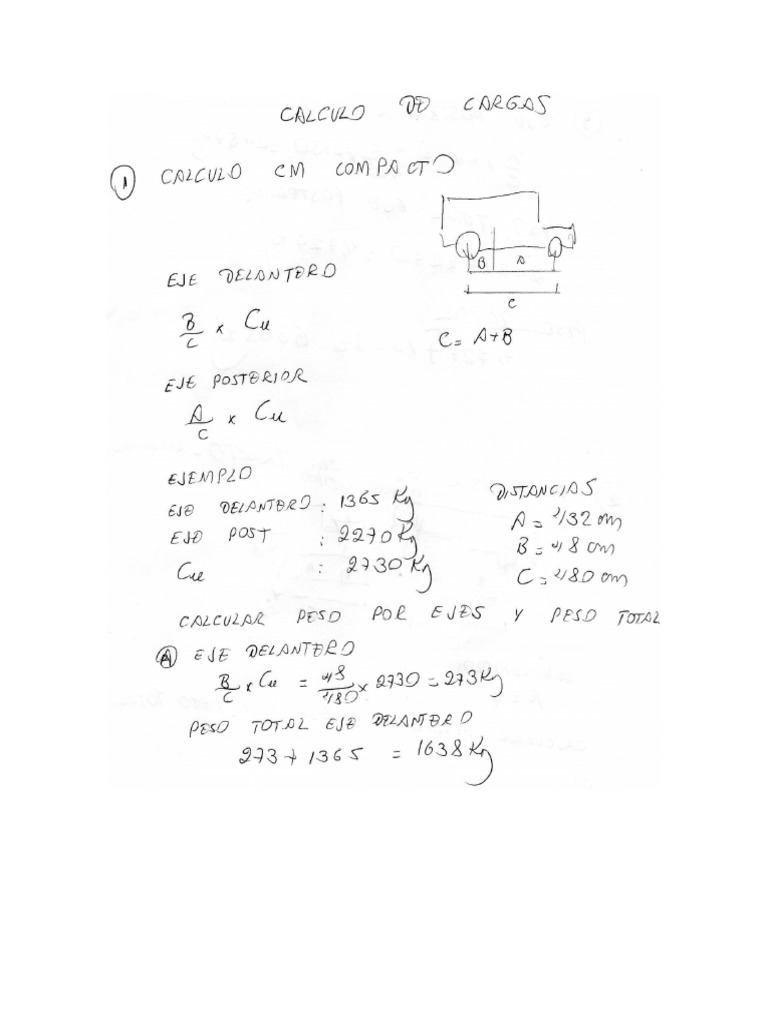 CALCULO DE CARGAS
1 CALCULO CM COMPACTO
B A
C
EJE DELANTERO
B/C x Cu
C = A+B
EJE POSTERIOR
A/C x Cu
EJEMPLO
DISTANCIAS
EJE DELANTERO : 1365 Kg
A = 432 cm
EJE POST : 2270 Kg
B = 48 cm
Cu : 2730 Kg
C = 480 cm
CALCULAR PESO POR EJES Y PESO TOTAL
A EJE DELANTERO
B/C x Cu = 48/480 x 2730 = 273 Kg
PESO TOTAL EJE DELANTERO
273 + 1365 = 1638 Kg